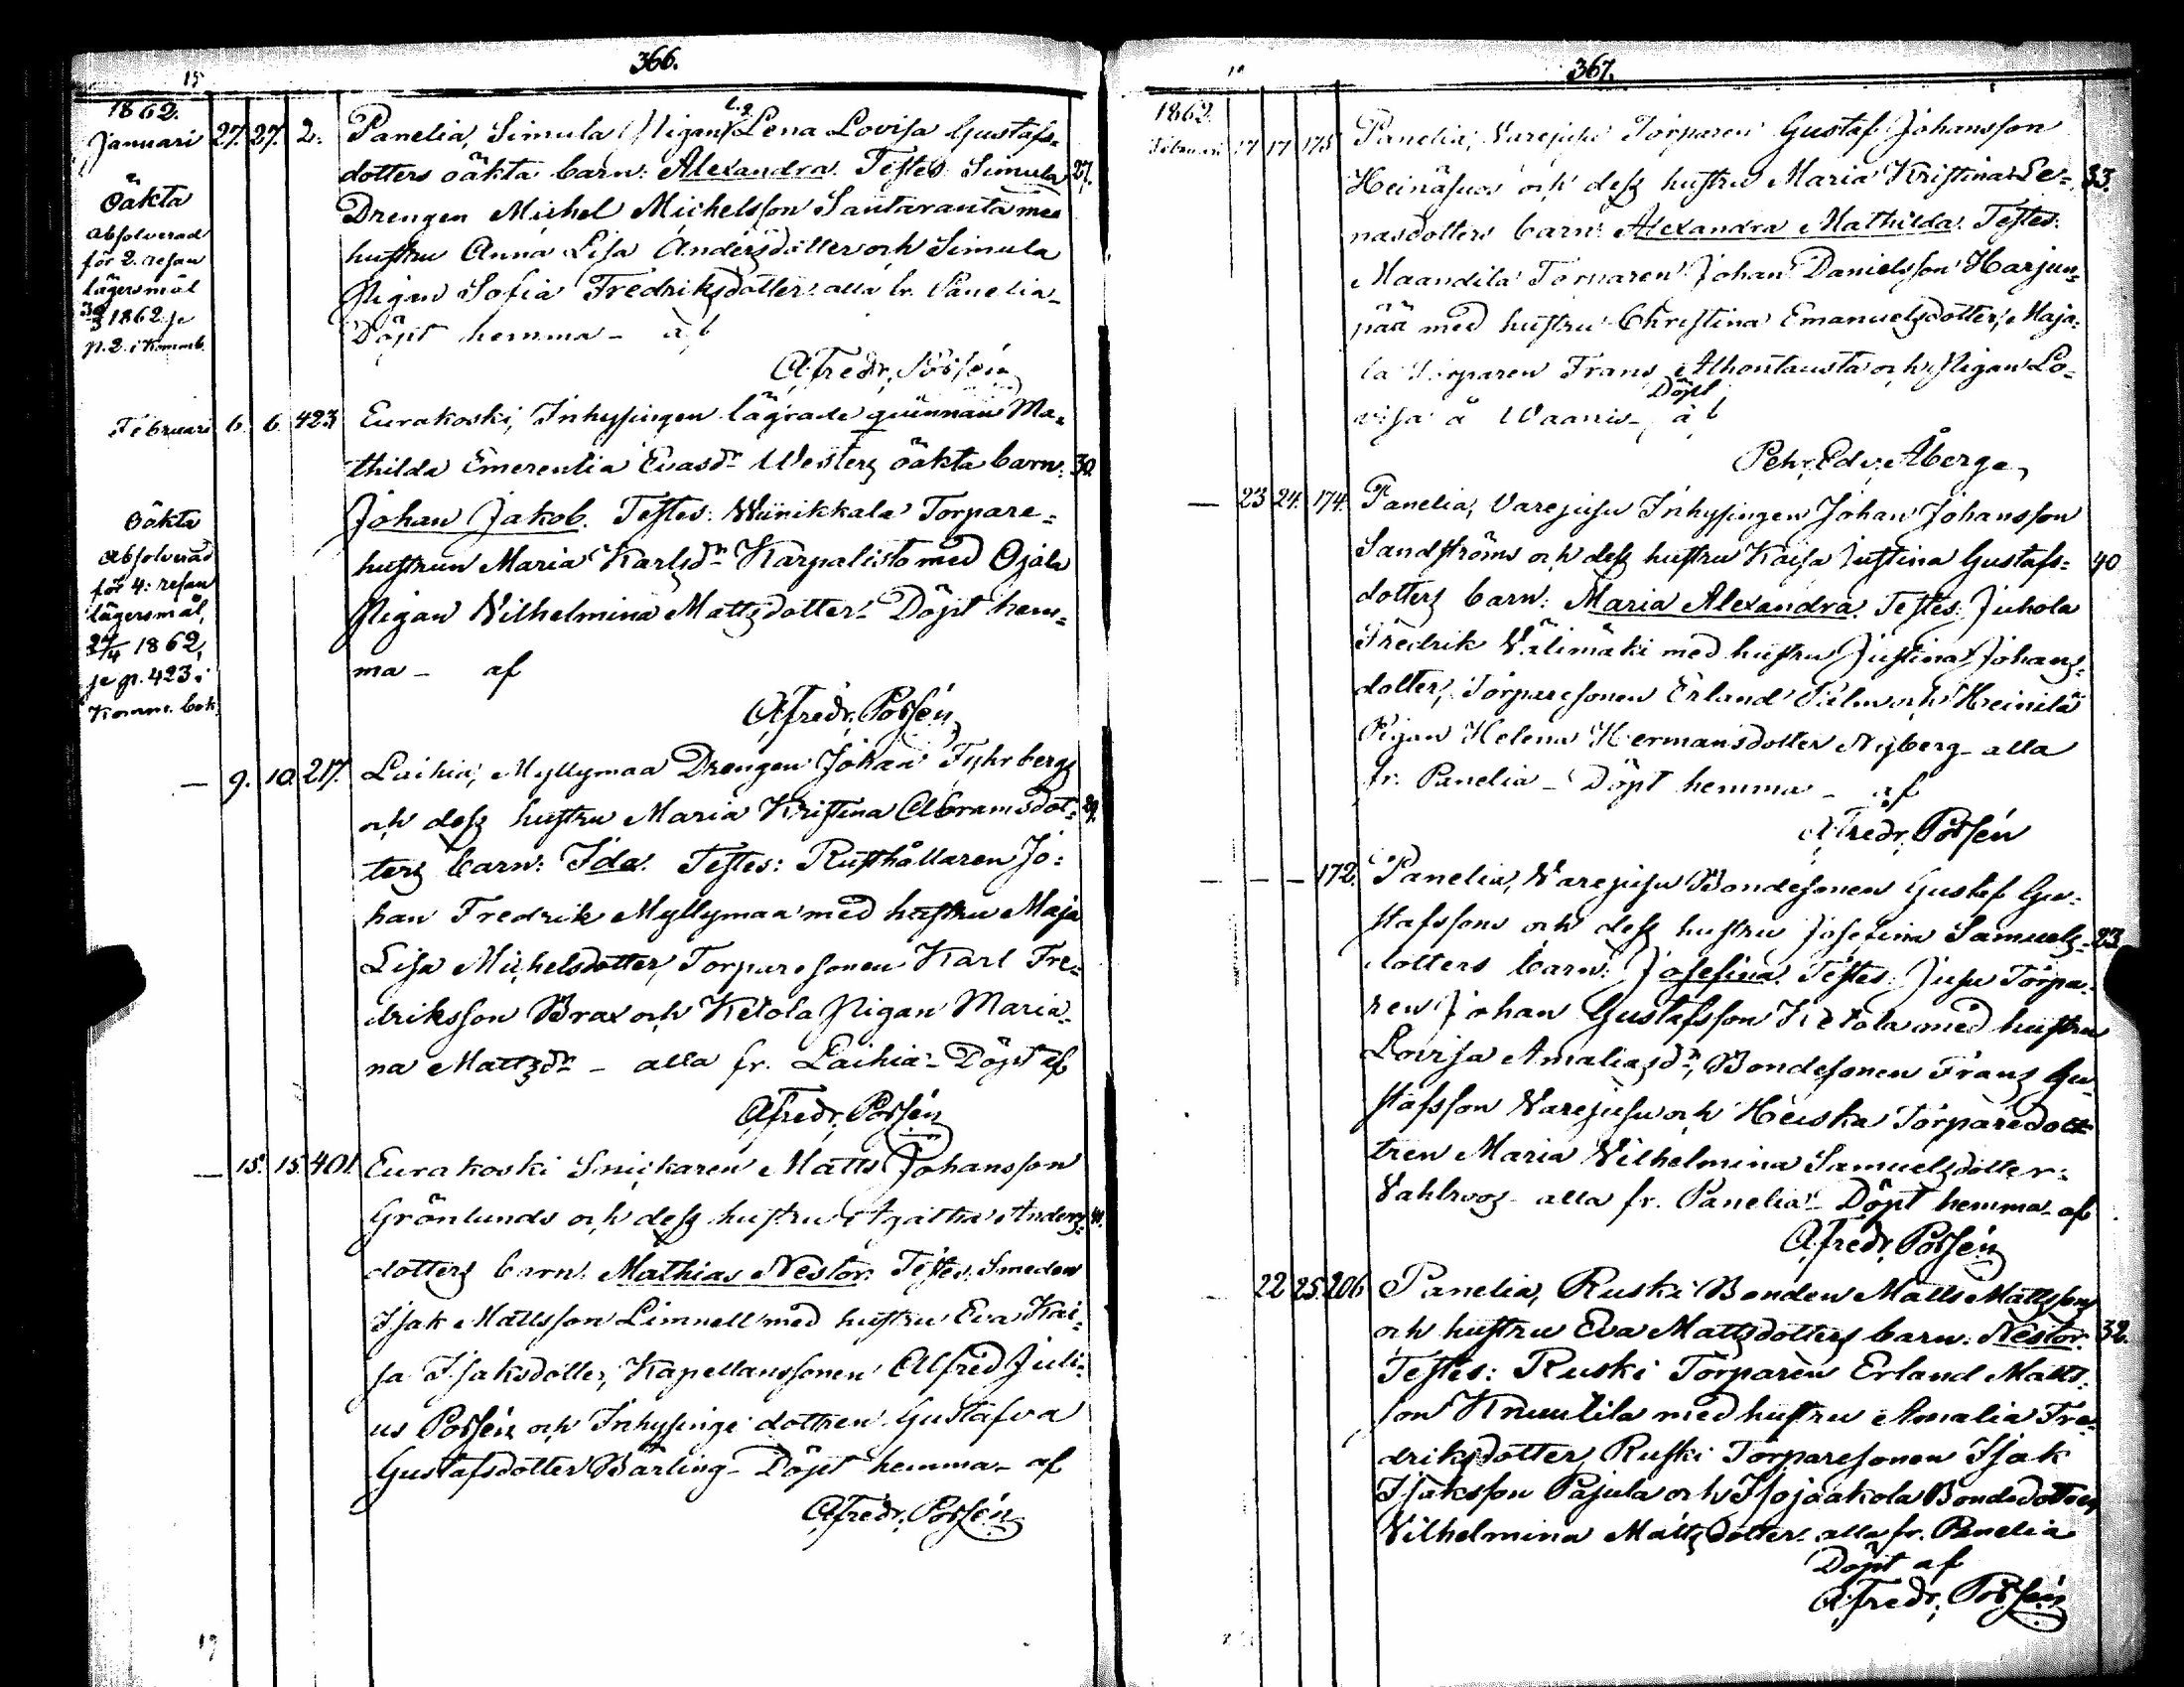 366.
15
1862.
Januari 27. 27. 2. Panelia, Simula Pigan Lena Lovisa Gustafs-
dotters oäkta barn: Alexandra. Testes: Simula 27.
Drengen Michel Michelsson Santaranta med
hustru Anna Lisa Andersdotter och Simula
Pigan Sofia Fredriksdotter alla fr. Panelia_
Döpt hemma_ af
A. Fredr. Possén
Oäkta
absolverad
för 2. resan
lägersmål
30/3 1862 se
p. 2. i Kommb.
Februari 6. 6. 423 Eurakoski, Inhysingen lägrade quinnan Ma-
thilda Emerentia Evasdr Westers oäkta barn: 30.
Johan Jakob. Testes: Wiinikkala Torpare-
hustrun Maria Karlsdr Karpalisto med Ojala
Pigan Vilhelmina Mattsdotter_ Döpt hem-
ma_ af
A. Fredr. Possén
Oäkta
absolverad
för 4: resan
lägersmål,
27/4 1862,
se p. 423 i
Komm. bok.
_ 9. 10. 217. Laihia, Myllymaa Drengen Johan Fyhrbergs
och dess hustru Maria Kristina Abramsdot- 29.
ters barn: Ida. Testes: Rusthållaren Jo-
han Fredrik Myllymaa med hustru Maja
Lisa Michelsdotter, Torparesonen Karl Fre-
driksson Brax och Ketola Pigan Maria-
na Mattsdr _ alla fr. Laihia_ Döpt af
A. Fredr. Possén
_ 15. 15. 401. Eurakoski Snickaren Matts Johansson
Grönlunds och dess hustru Agatha Anders-
dotters barn: Mathias Nestor. Testes: Smeden
Isak Mattsson Limnell med hustru Eva Kai-
sa Isaksdotter, Kapellanssonen Alfred Juli-
us Possén och Inhysinge dottren Gustafva
Gustafsdotter Bärling_ Döpt hemma_ af
A. Fredr. Possén
367.
1862.
Februari 17 17 175 Panelia, Varejusu Torparen Gustaf Johansson
Heinäsuos och dess hustru Maria Kristina Le- 33.
nasdotters barn: Alexandra Mathilda. Testes:
Maandila Torparen Johan Danielsson Harjun-
pää med hustru Christina Emanuelsdotter, Maja-
la Torparen Frans Ahontausta och Pigan Lo-
visa å Waanis_ Döpt af
Pehr. Edv. Åberg
_ 23 24. 174. Panelia, Varejusu Inhysingen Johan Johansson
Sandströms och dess hustru Kaisa Justina Gustafs- 40
dotters barn: Maria Alexandra. Testes: Juhola
Fredrik Välimäki med hustru Justina Johans-
dotter, Torparesonen Erland Palm och Heinilä
Pigan Helena Hermansdotter Nyberg_ alla
fr. Panelia_ Döpt hemma_ af
A. Fredr. Possén
_ _ _ 172. Panelia, Varejusu Bondesonen Gustaf Gu-
stafssons och dess hustru Josefina Samuels- 23.
dotters barn: Josefina. Testes: Jusu Torpa-
ren Johan Gustafsson Ketola med hustru
Lovisa Amaliasdr, Bondesonen Frans Gu-
stafsson Varejusu och Heiska Torparedot-
tren Maria Vilhelmina Samuelsdotter
Vahlroos_ alla fr. Panelia_ Döpt hemma_ af
A. Fredr. Possén
_ 22 25. 206 Panelia, Ruski Bonden Matts Mattssons
och hustru Eva Mattsdotters barn: Nestor. 32.
Testes: Ruski Torparen Erland Matts-
son Knuutila med hustru Amalia Fre-
driksdotter, Ruski Torparesonen Isak
Isaksson Pajula och Isojaakola Bondedottren
Vilhelmina Mattsdotter_ alla fr. Panelia
Döpt af
A. Fredr. Possén